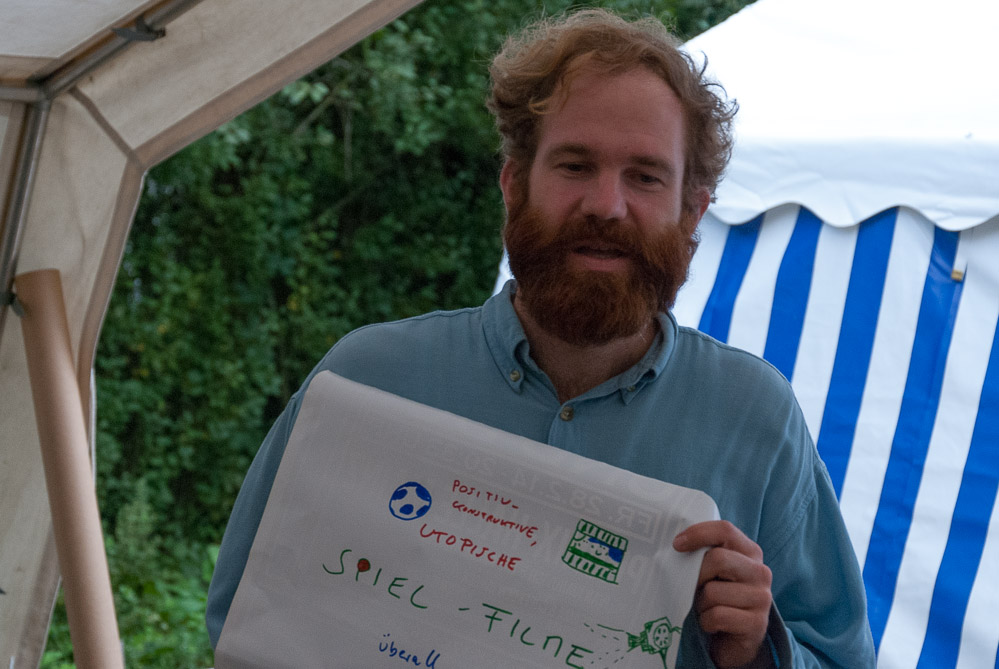 POSITIV-
CONSTRUKTIVE,
UTOPISCHE
SPIEL-FILME
überall